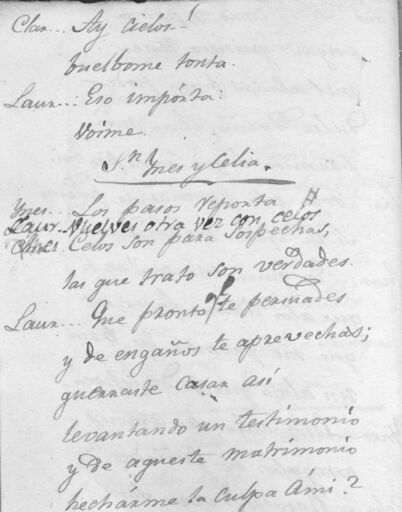 Clar... Ay cielos!
buelbome tonta.
Laur... Eso impórta:
Voime.
Sn. Ynes y Celia.
Ynes... Los pasos reporta
Laur... Vuelves otra vez con celos
Ynes. Celos son para sospechas,
las que trato son verdades.
Laur... Que pronto te persuades
y de engaños te aprevechas;
querraste casar así
levantando un testimonio
y de aqueste matrimonio
hechárme la culpa ámi?